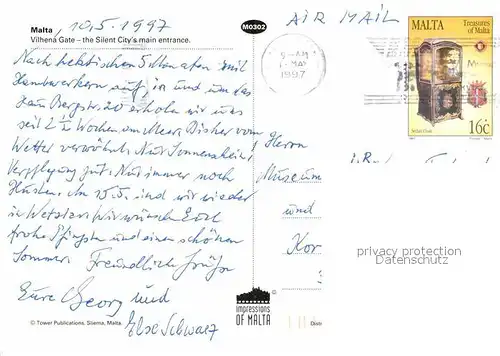 Malta, 10.5.1997
Vilhena Gate – the Silent City's main entrance.
M0302
Nach hektischen 5 Monaten mit
Handwerkern auf, in und um das
Haus Bergstr. 20 erholen wir uns
seit 2 1/2 Wochen am Meer. Bisher vom
Wetter verwöhnt. Nur Sonnenschein!
Verpflegung gut. Nur immer noch
Husten. Am 15.5. sind wir wieder
in Wetzlar. Wir wünschen Euch
frohe Pfingsten und einen schönen
Sommer. Freundliche Grüße
Eure Georg und
Else Schwarz
© Tower Publications, Sliema, Malta.
AIR MAIL
5 - AM
MAY
1997
MALTA
Treasures of Malta
Sedan Chair
16c
Herrn
Museum
und
Kor
privacy protection
AnsichtskartenCenter
impressions
OF MALTA
Distri